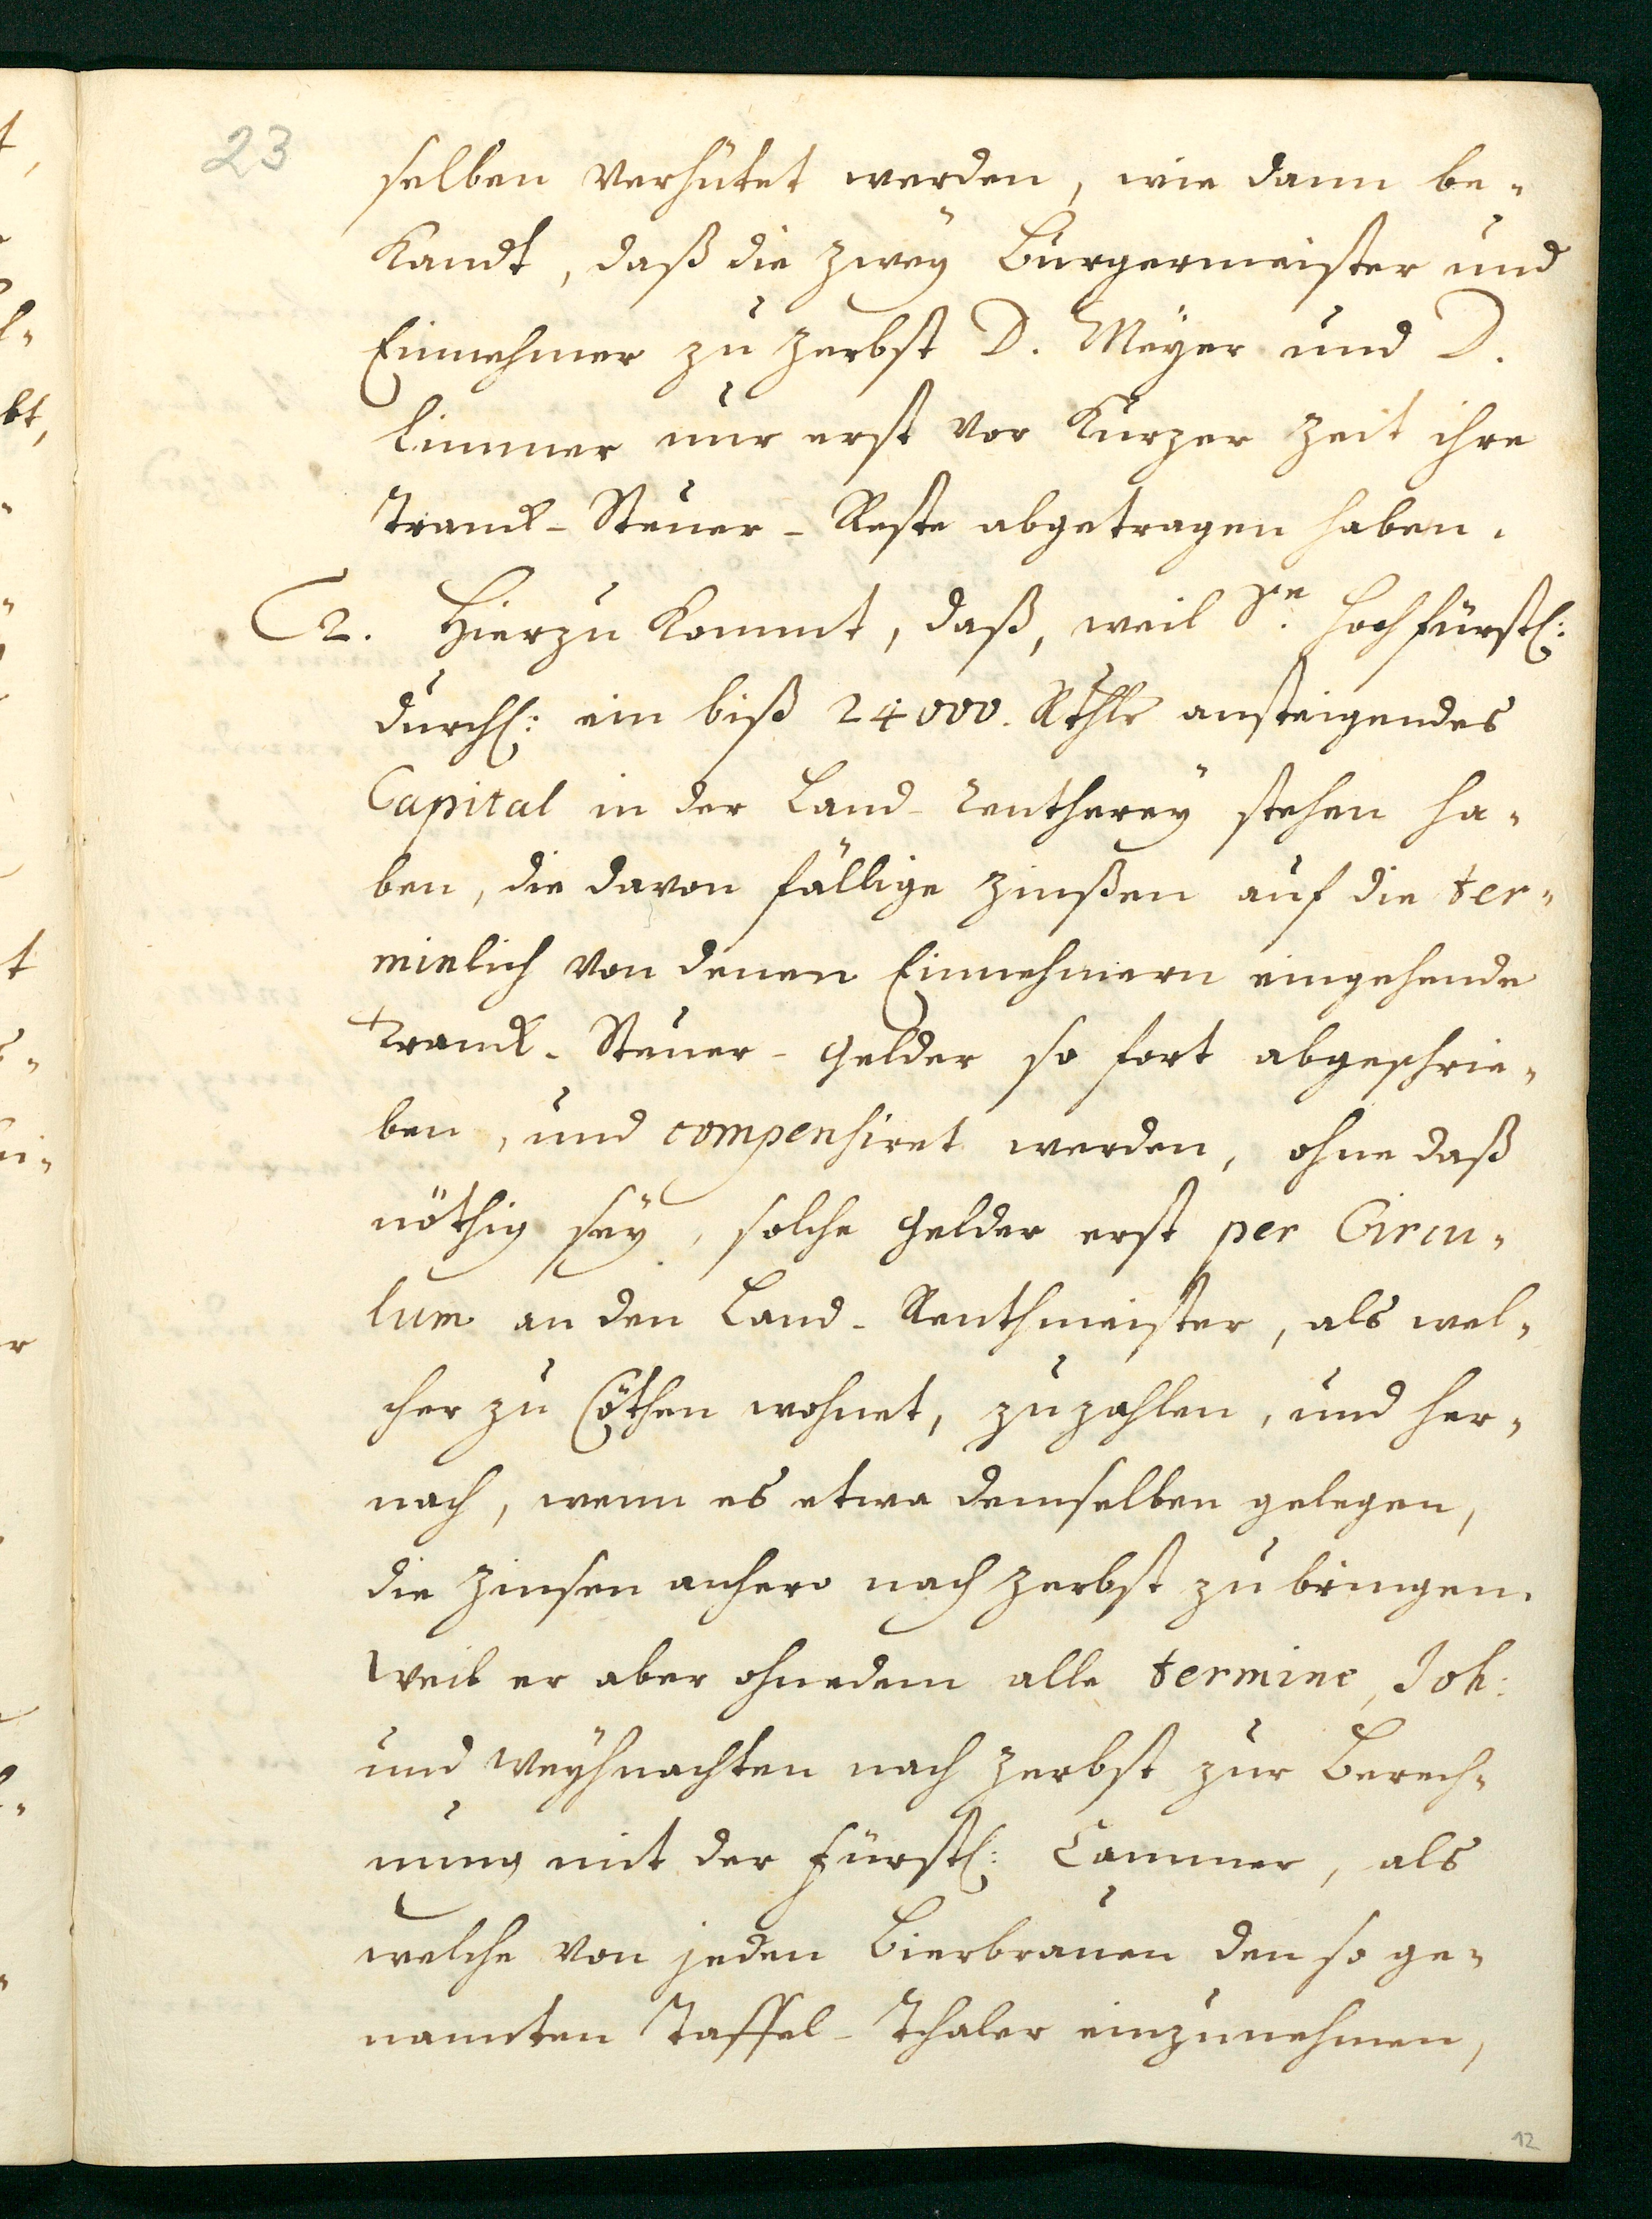 23
selben verhütet werden, wie dann be-
kandt, daß die zwey Bürgermeister und
Einnehmer zu Zerbst D. Meyer und D.
Limmer nur erst vor kurzer Zeit ihre
Tranck-Steuer-Reste abgetragen haben.
2. Hierzu kommt, daß, weil Se. Hochfürstl:
Durchl: ein biß 24000. Rthlr ansteigendes
Capital in der Land-Rentherey stehen ha-
ben, die davon fällige Zinßen auf die ter-
minlich von denen Einnehmern eingehende
Tranck-Steuer-Gelder so fort abgeschrie-
ben, und compensiret werden, ohne daß
nöthig sey, solche Gelder erst per Circu-
lum an den Land-Renthmeister, als wel-
cher zu Cöthen wohnet, zuzahlen, und her-
nach, wenn es etwa demselben gelegen,
die Zinsen anhero nach Zerbst zu bringen.
Weil er aber ohnedem alle termine, Joh:
und Weyhnachten nach Zerbst zur Berech-
nung mit der Fürstl: Cammer, als
welche von jeden Bierbrauen den so ge-
nannten Taffel-Thaler einzunehmen,
12